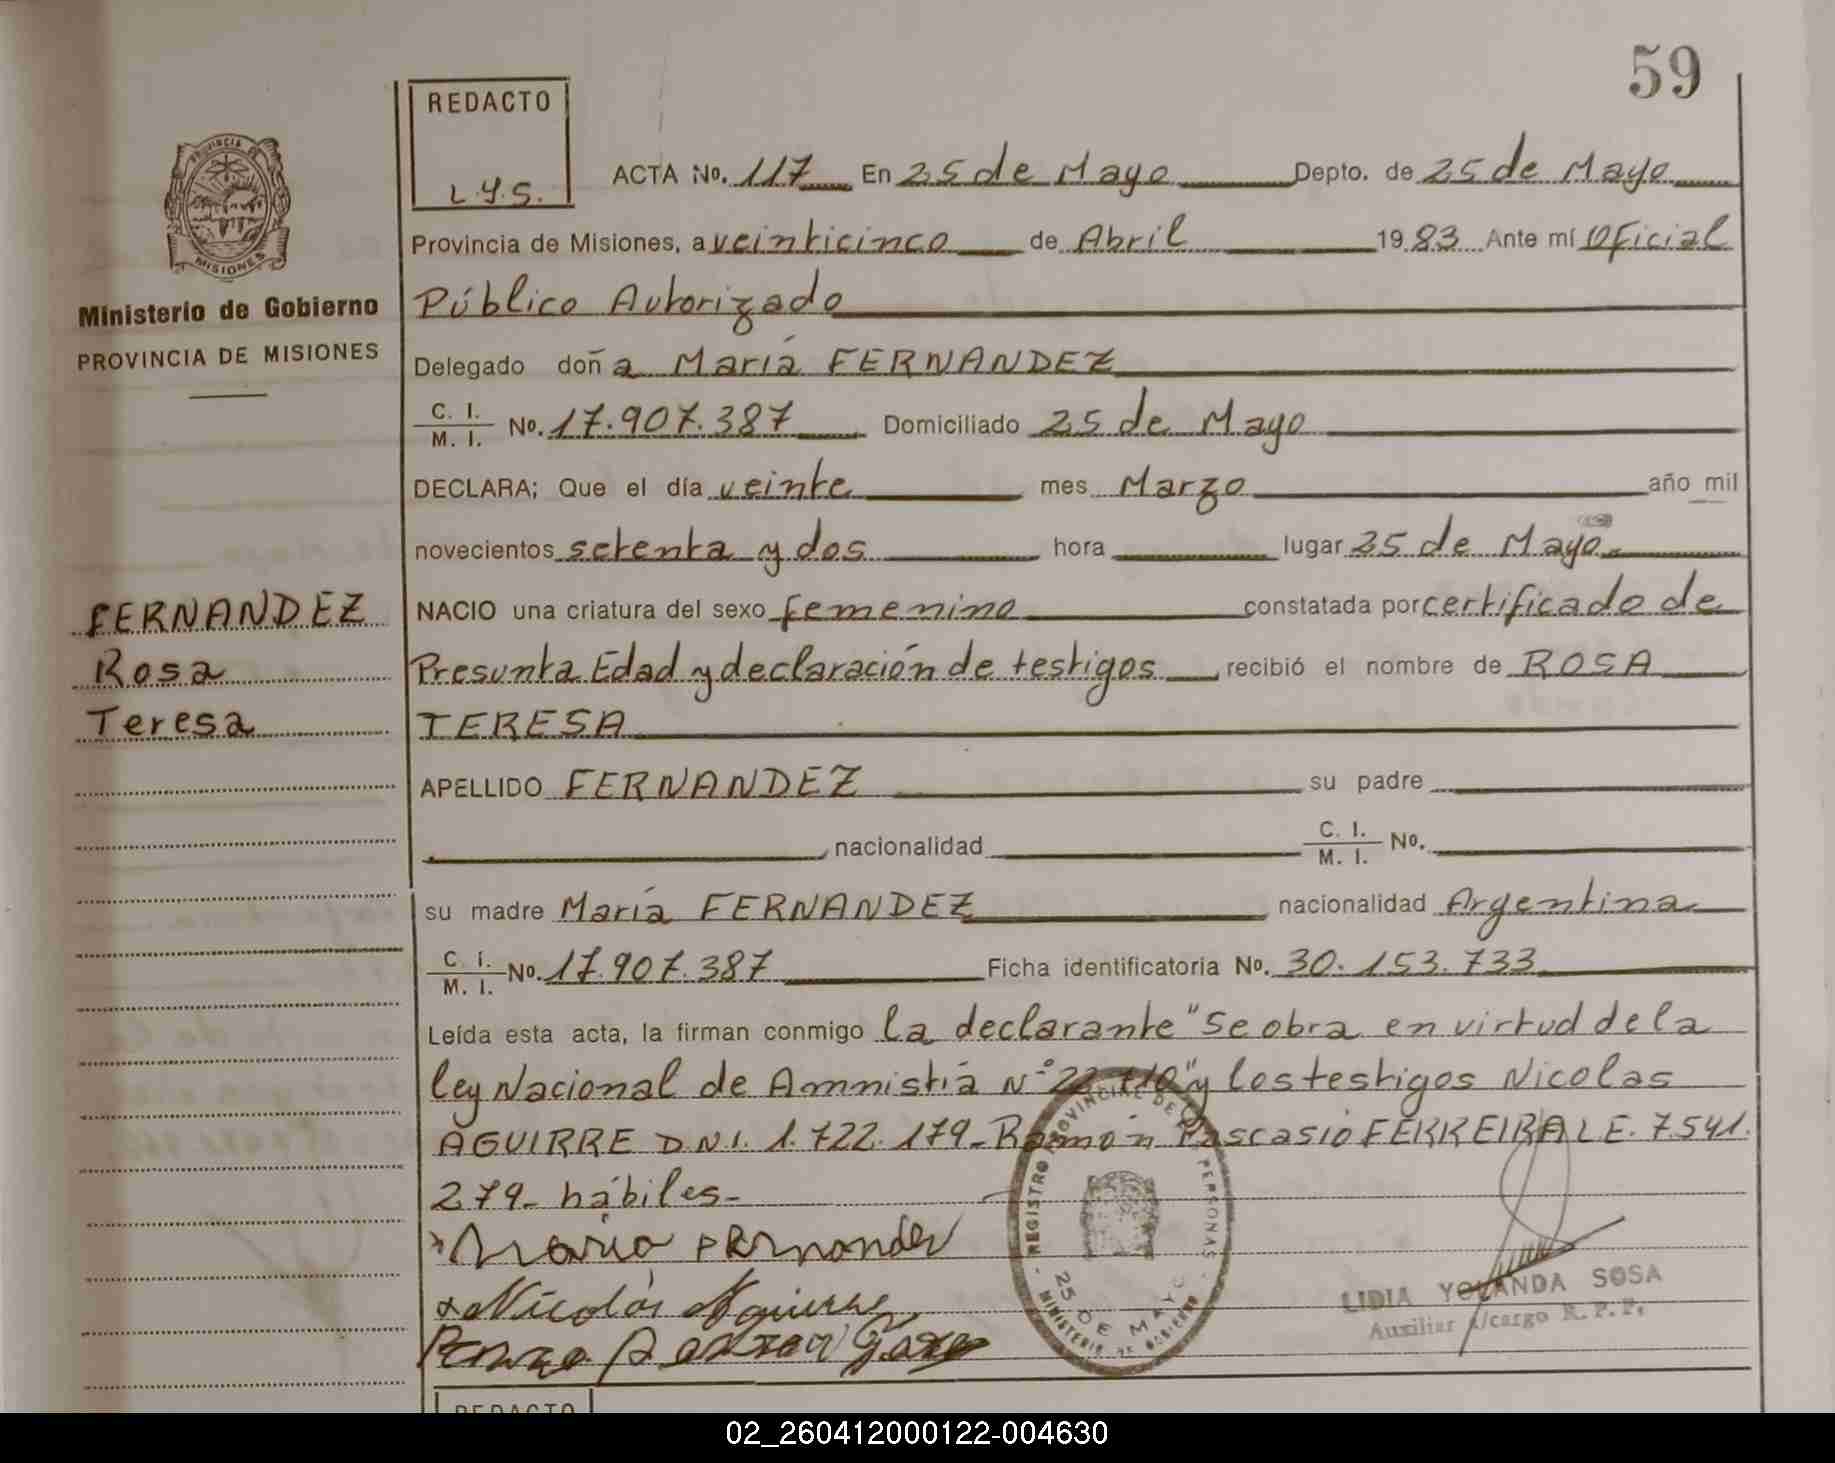 59
REDACTO
L.Y.S.
ACTA No. 117 En 25 de Mayo Depto. de 25 de Mayo
PROVINCIA DE
MISIONES
Provincia de Misiones, a veinticinco de Abril 1983 Ante mí Oficial
Ministerio de Gobierno
Público Autorizado
PROVINCIA DE MISIONES
Delegado doña María FERNANDEZ
C. I.
M. I. No. 17.907.387 Domiciliado 25 de Mayo
DECLARA; Que el día veinte mes Marzo año mil
novecientos setenta y dos hora lugar 25 de Mayo
FERNANDEZ
NACIO una criatura del sexo femenino constatada por certificado de
Rosa
Presunta Edad y declaración de testigos recibió el nombre de ROSA
Teresa
TERESA
APELLIDO FERNANDEZ su padre
nacionalidad C. I.
M. I. No.
su madre María FERNANDEZ nacionalidad Argentina
C. I.
M. I. No. 17.907.387 Ficha identificatoria No. 30.153.733
Leída esta acta, la firman conmigo la declarante "Se obra en virtud de la
ley Nacional de Amnistía N° y los testigos Nicolas
AGUIRRE D.N.I. 1.722.179- Ramón Pascasio FERREIRA L E. 7.541.
279- hábiles-
María Fernandez
Nicolás Aguirre
REGISTRO PROVINCIAL DE LAS PERSONAS
25 DE MAYO
MINISTERIO DE GOBIERNO
LIDIA YOLANDA SOSA
Auxiliar a/cargo R. P. P.
REDACTO
02_260412000122-004630